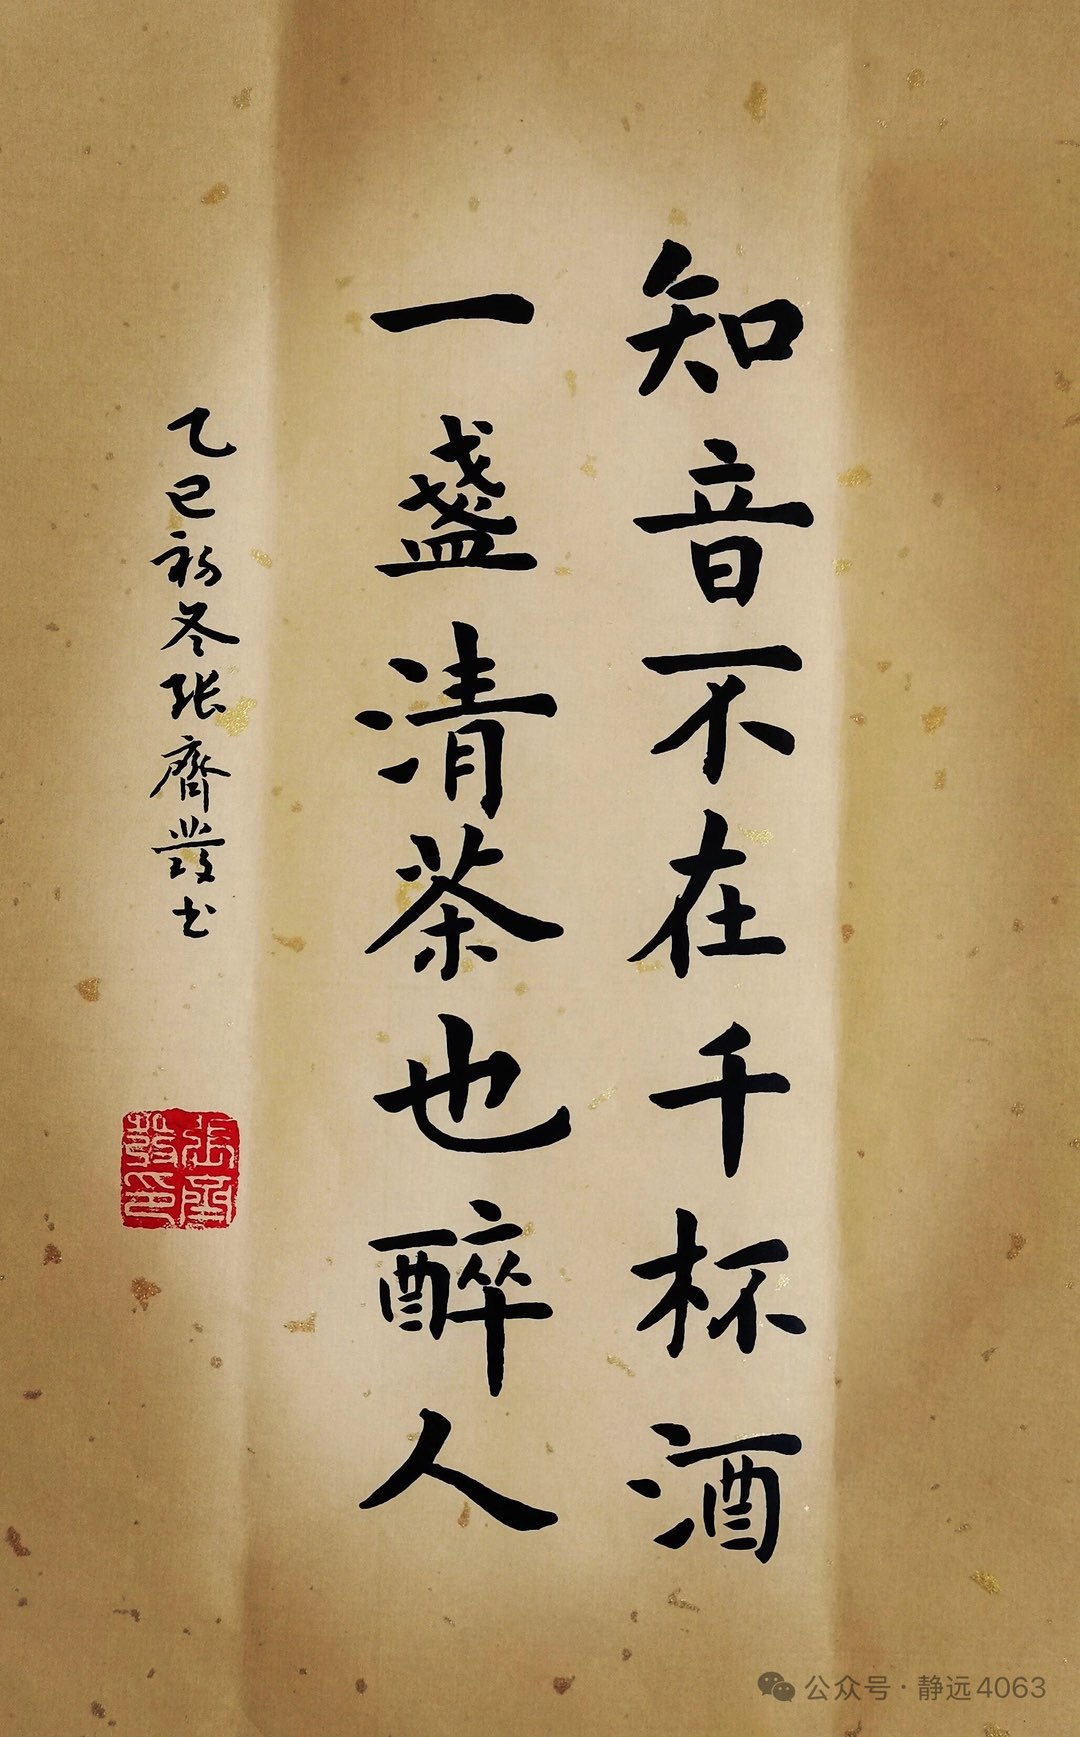 知音不在千杯酒
一盏清茶也醉人
乙巳初冬张齊發书
张齊發印
公众号·静远4063